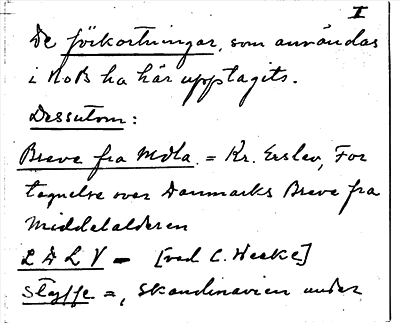 I
De förkortningar, som användas
i NoB ha här upptagits.
Dessutom:
Breve fra Mdla. = Kr. Erslev, For
tegnelse over Danmarks Breve fra
Middelalderen
L D L V = [ved C. Weeke]
Styffe =, Skandinavien under